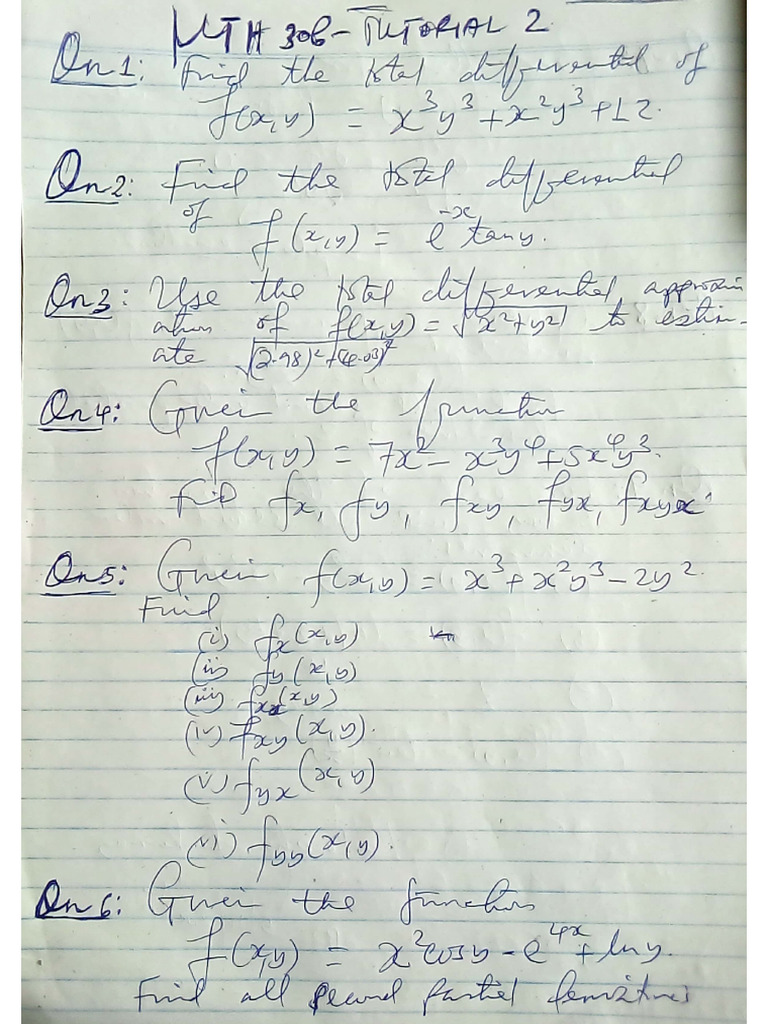 MTH 306 - TUTORIAL 2
Qn1: Find the total differential of
f(x,y) = x³y³ + x²y³ + 12.
Qn2: Find the total differential
of f(x,y) = e⁻ˣ tan y.
Qn3: Use the total differential approxim
ation of f(x,y) = √x²+y² to estim-
ate √(2.98)²+(4.03)²
Qn4: Given the function
f(x,y) = 7x² - x³y⁴ + 5x⁴y³.
Find fx, fy, fxy, fyx, fxyx.
Qn5: Given f(x,y) = x³ + x²y³ - 2y².
Find
(i) fx(x,y)
(ii) fy(x,y)
(iii) fxx(x,y)
(iv) fxy(x,y).
(v) fyx(x,y)
(vi) fyy(x,y).
Qn6: Given the function
f(x,y) = x²cosy - e⁴ˣ + lny.
Find all second partial derivatives